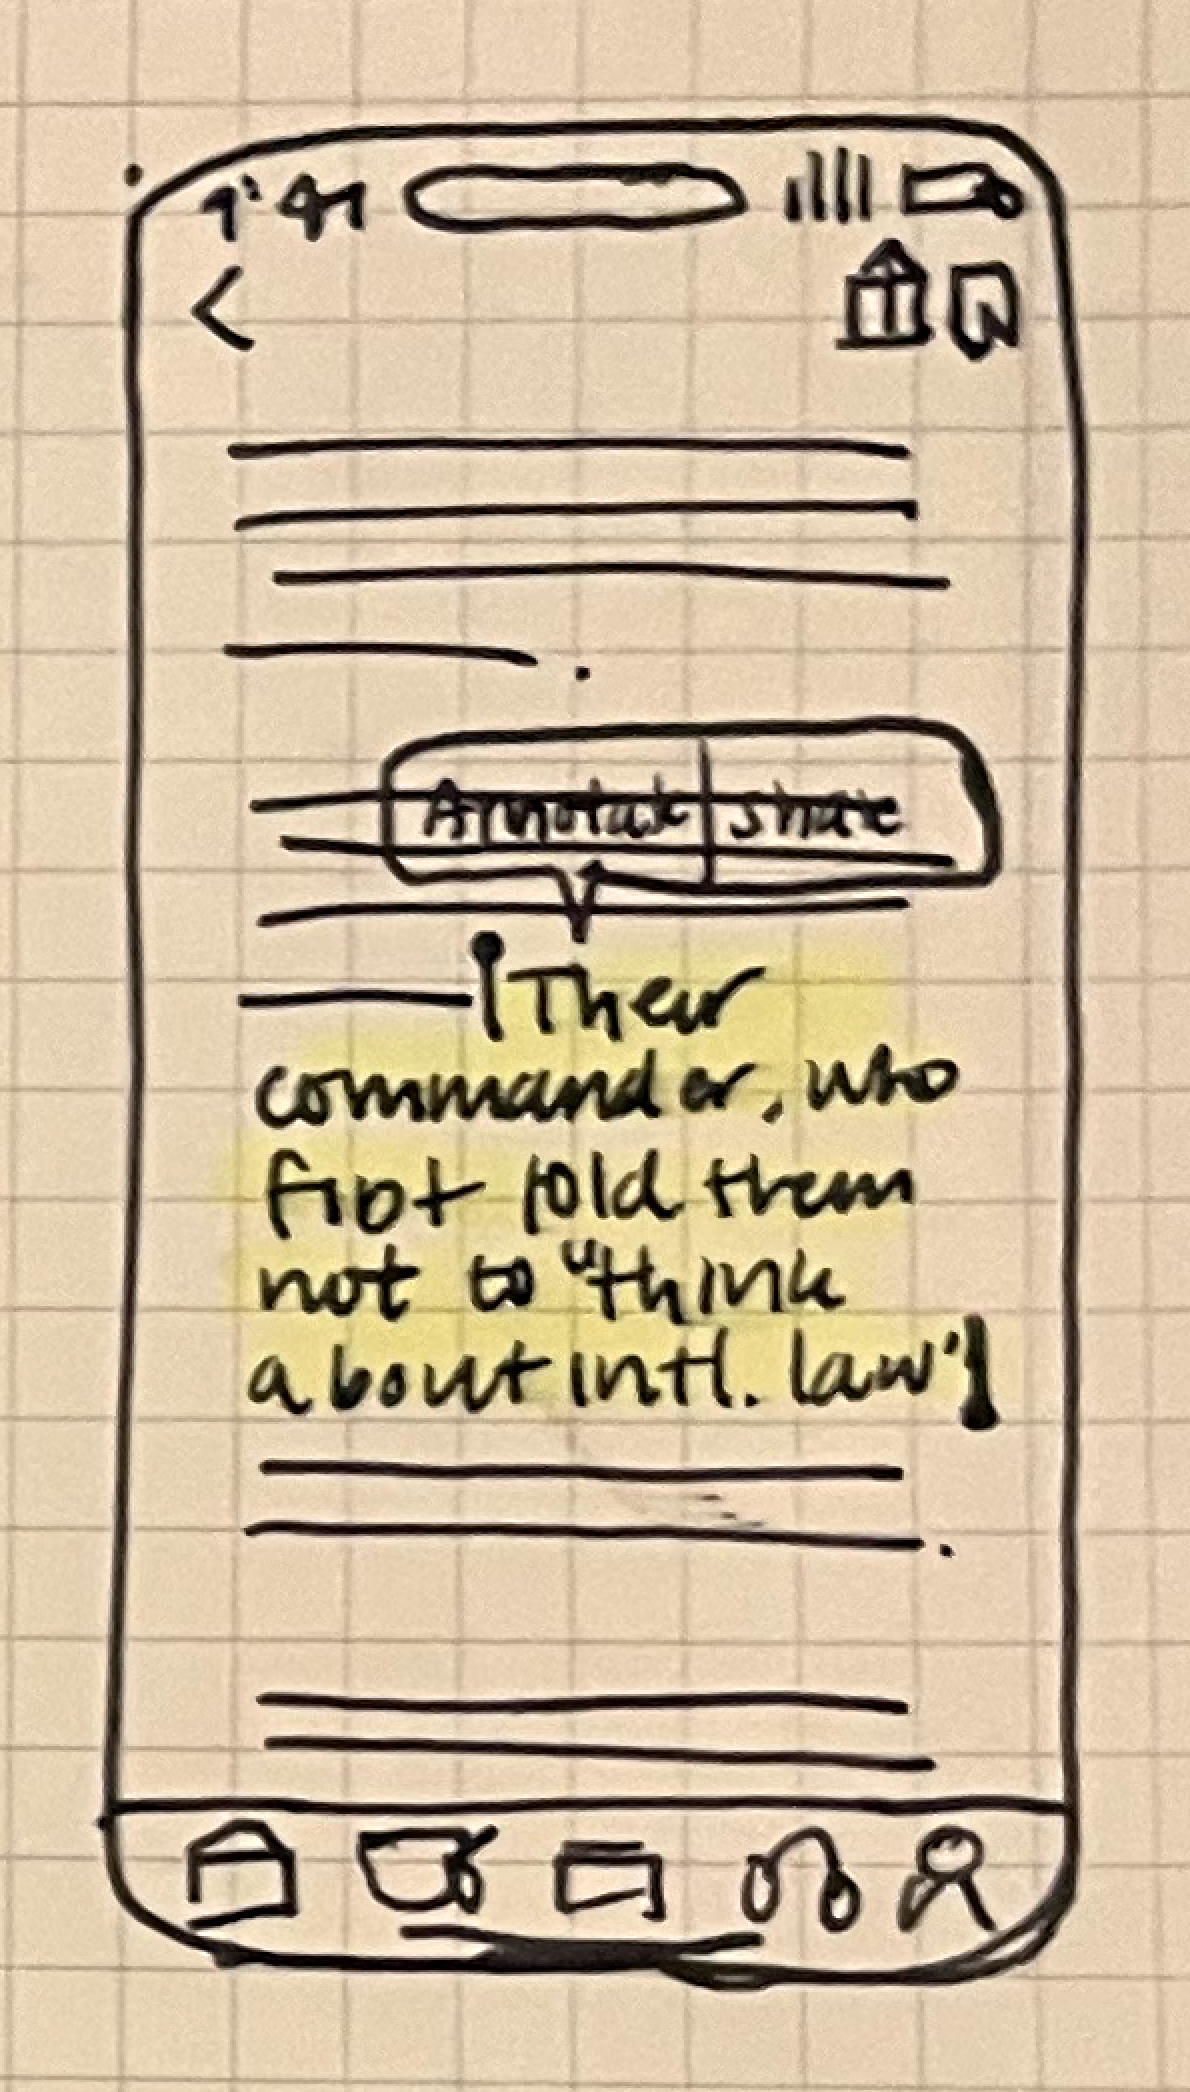 9:41
Annotate share
Their
commander, who
first told them
not to "think
about intl. law"